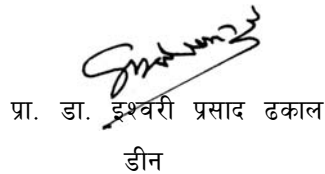 प्रा. डा. इश्वरी प्रसाद ढकाल
डीन